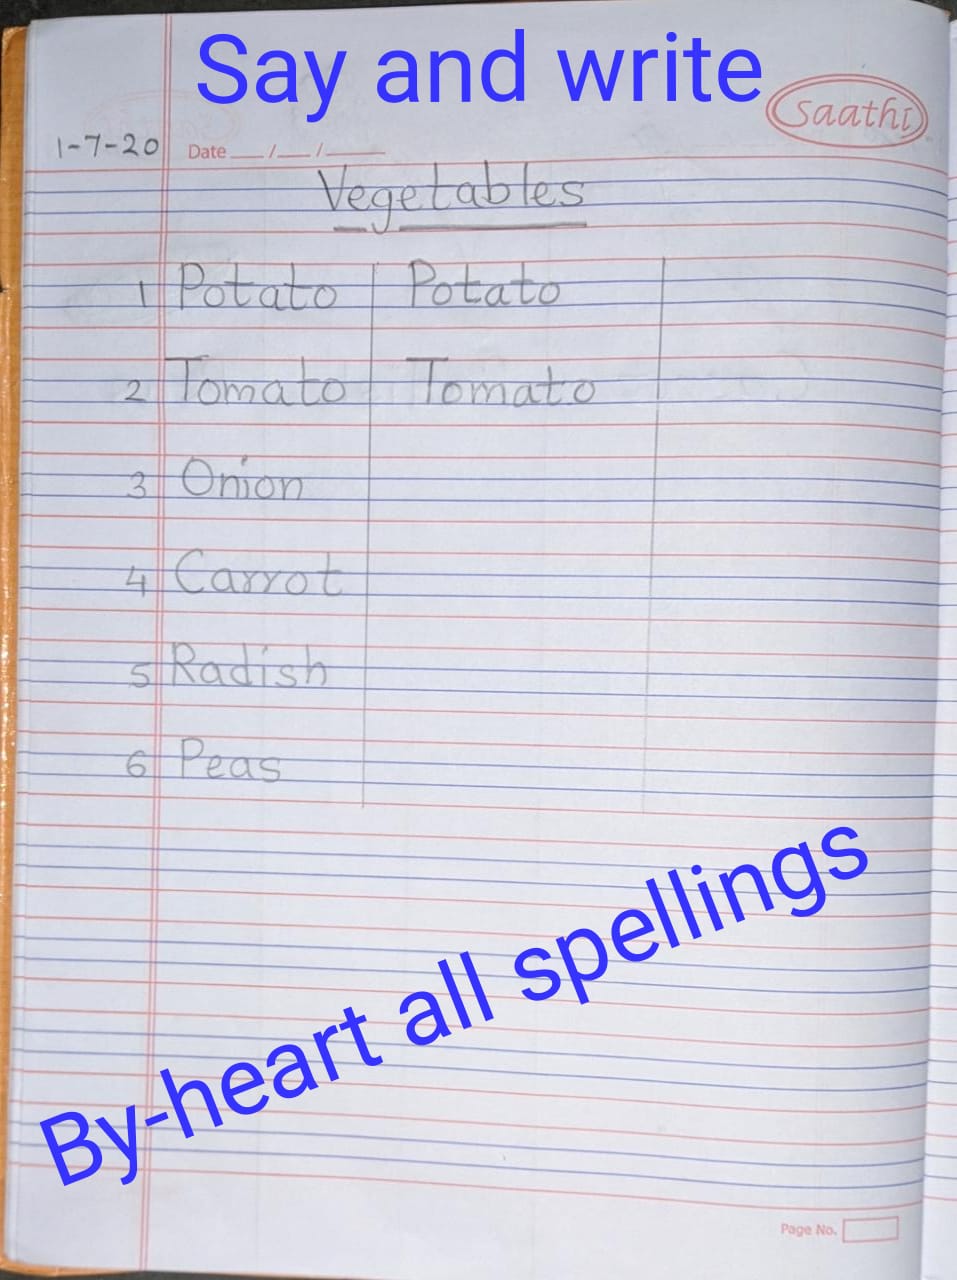 Say and write
saathi
1-7-20 Date __/__/____
Vegetables
1 Potato Potato
2 Tomato Tomato
3 Onion
4 Carrot
5 Radish
6 Peas
By-heart all spellings
Page No.